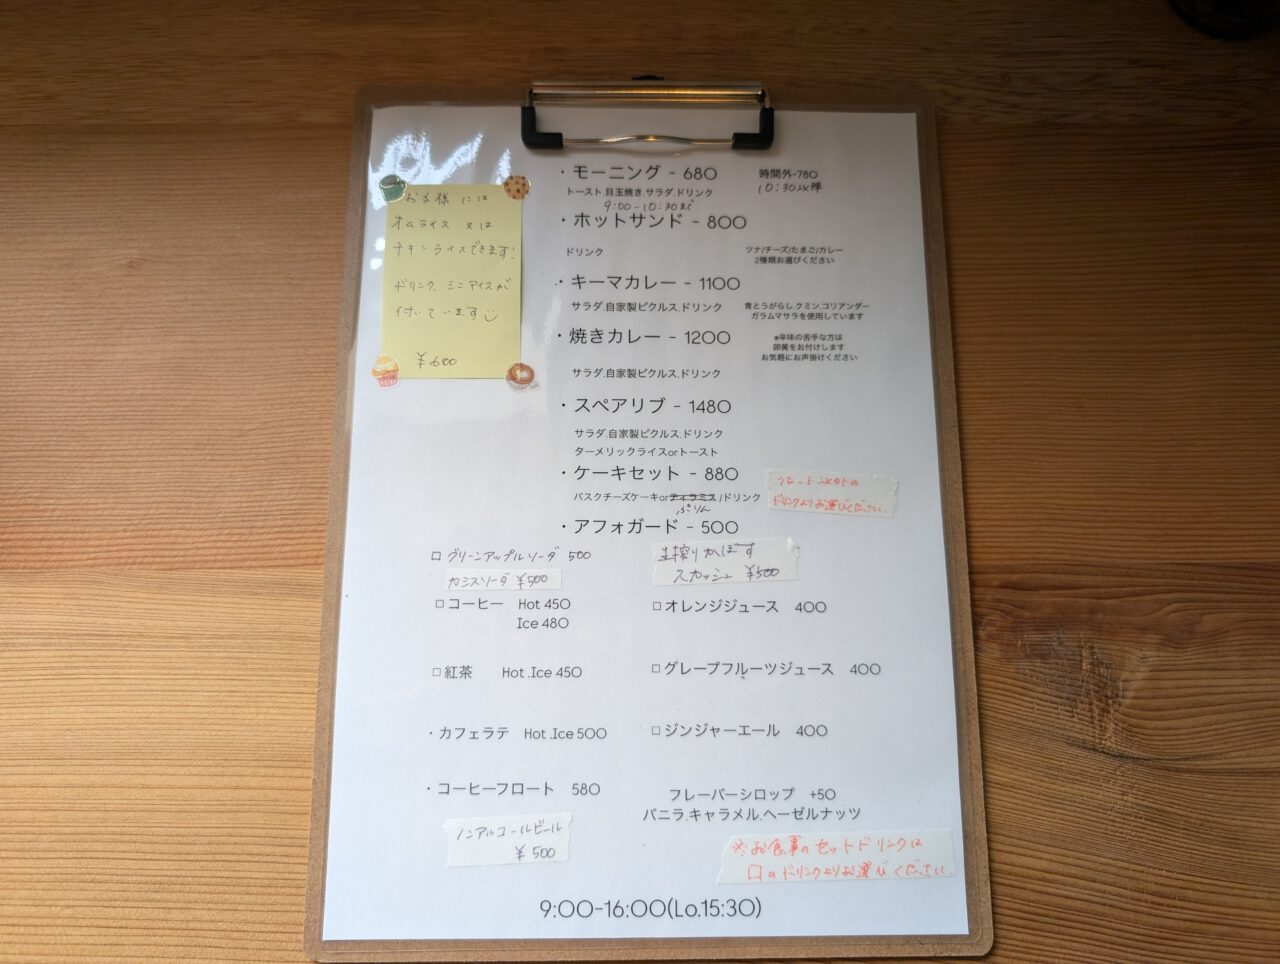 お子様には
オムライス 又は
チキンライスできます!
ドリンク、ミニアイスが
付いています
¥600
・モーニング - 680
時間外-780
10:30以降
トースト.目玉焼き.サラダ.ドリンク
9:00-10:30まで
・ホットサンド - 800
ドリンク
ツナ/チーズ/たまご/カレー
2種類お選びください
・キーマカレー - 1100
サラダ.自家製ピクルス.ドリンク
青とうがらし.クミン.コリアンダー
ガラムマサラを使用しています
・焼きカレー - 1200
※辛味の苦手な方は
卵黄をお付けします
お気軽にお声掛けください
サラダ.自家製ピクルス.ドリンク
・スペアリブ - 1480
サラダ.自家製ピクルス.ドリンク
ターメリックライスorトースト
・ケーキセット - 880
フロート以外の
ドリンクよりお選びください。
バスクチーズケーキorティラミス/ドリンク
ぷりん
・アフォガード - 500
□ グリーンアップルソーダ 500
カシスソーダ ¥500
生搾りかぼす
スカッシュ ¥500
□コーヒー Hot 450
Ice 480
□オレンジジュース 400
□紅茶 Hot .Ice 450
□グレープフルーツジュース 400
・カフェラテ Hot .Ice 500
□ジンジャーエール 400
・コーヒーフロート 580
フレーバーシロップ +50
バニラ.キャラメル.ヘーゼルナッツ
ノンアルコールビール
¥500
※お食事のセットドリンクは
□のドリンクよりお選びください。
9:00-16:00(Lo.15:30)